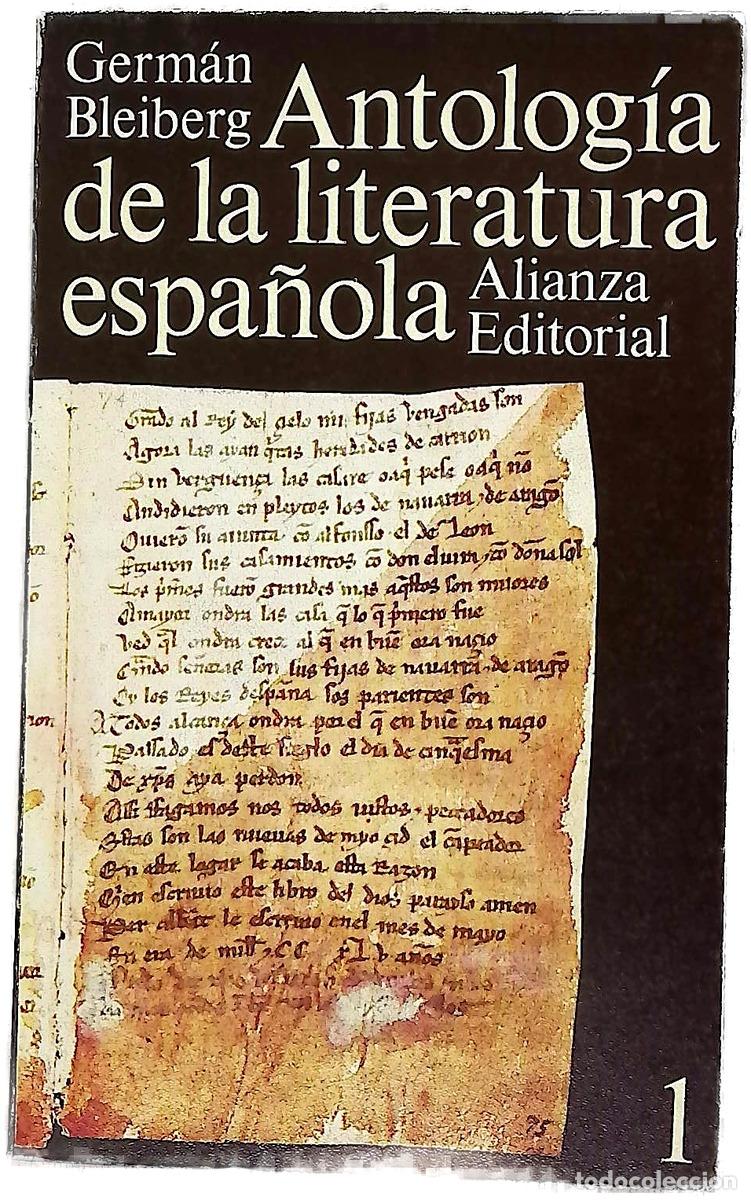 Germán
Bleiberg Antología
de la literatura
española Alianza
Editorial
Grado al Rey del çielo mis fijas vengadas son
Agora las ayan q̃tas heredades de carrion
Sin verguença las casare oaq̃ pese oaq̃ nõ
Andidieron en pleytos los de nauarra ⁊ de aragõ
Ouierõ su aiunta cõ alfonsso el de Leon
Fizieron sus casamientos cõ don eluira ⁊ cõ doña sol
Los p̃meros fuerõ grandes mas aq̃stos son miiores
A mayor ondra las casa q̃ lo q̃ p̃mero fue
Ved q̃l ondra creçe al q̃ en buẽ ora naçio
Quãdo señoras son sus fijas de nauarra ⁊ de aragõ
Oy los Reyes despaña sos parientes son
A Todos alcança ondra por el q̃ en buẽ ora naçio
Passado es deste sieglo el dia de cinq̃esma
De xp̃s aya perdon
Assi ffagamos nos todos iustos ⁊ peccadores
Estas son las nueuas de myo çid el cãpeador
En este logar se acaba esta Razon
Quien escriuio este libro del dios parayso amen
Per abbat le escriuio enel mes de mayo
En era de mill ⁊ CC XLv años
75
1
todocoleccion